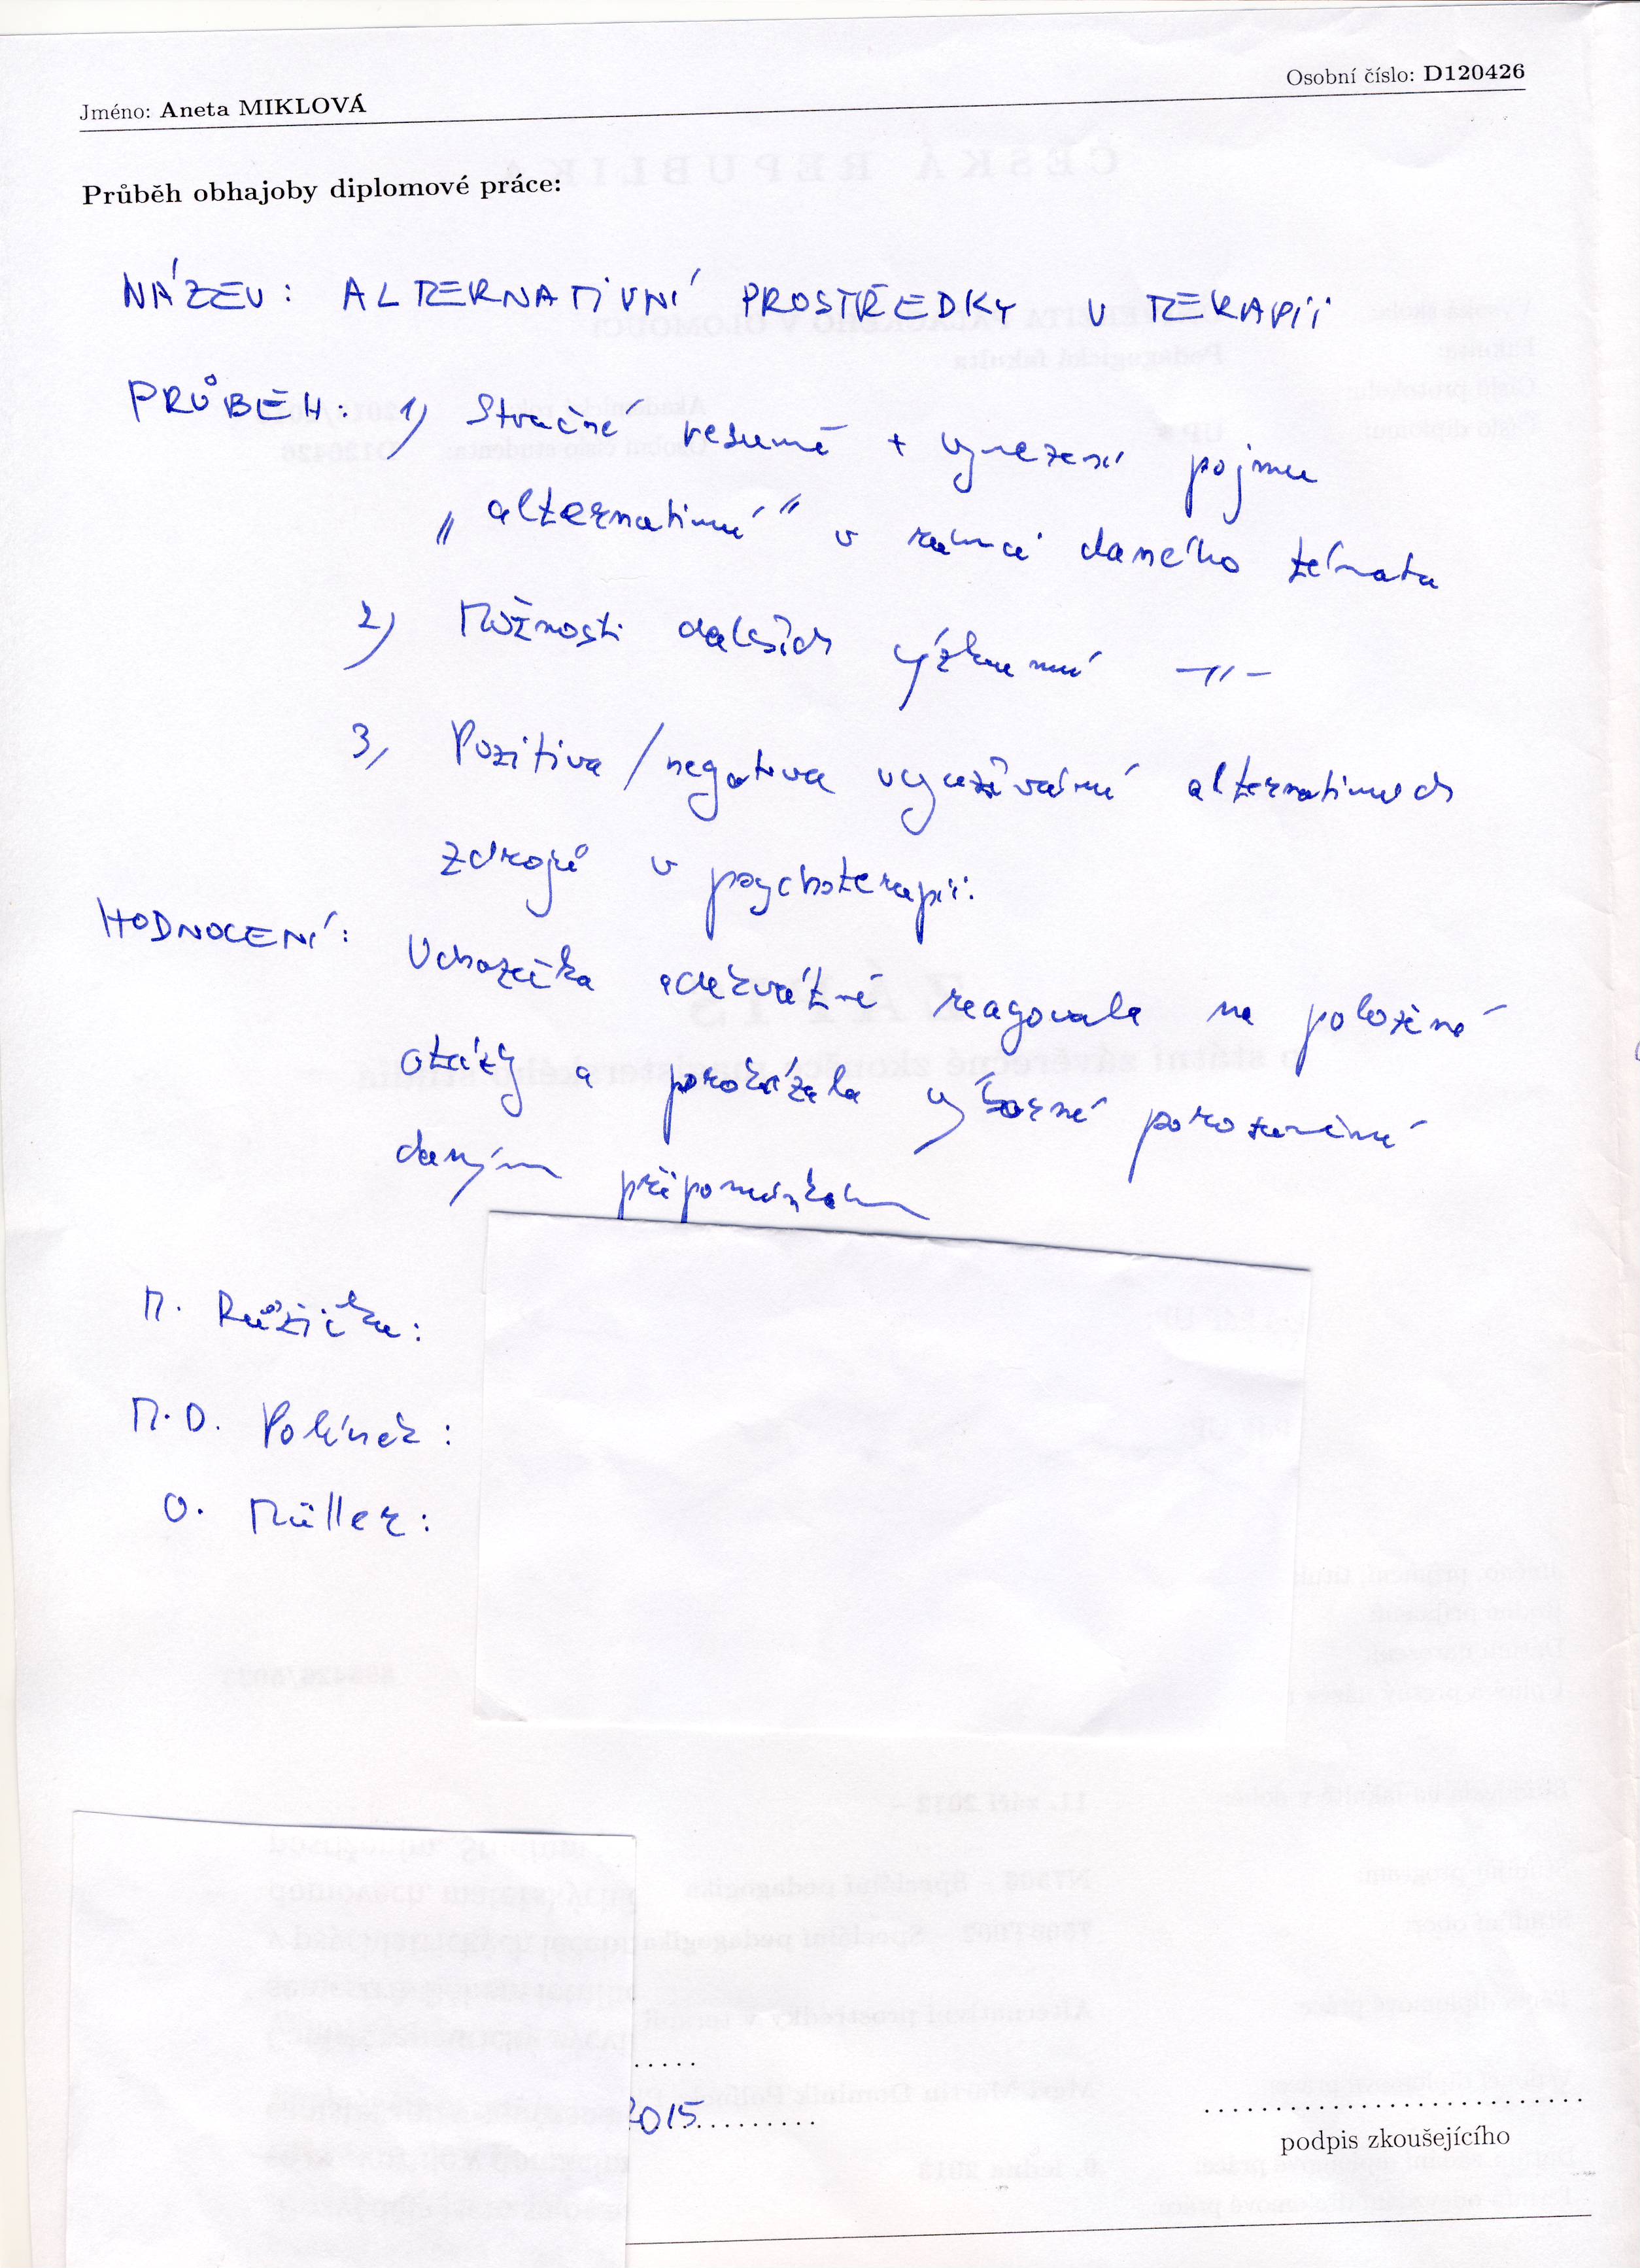 Jméno: Aneta MIKLOVÁ
Osobní číslo: D120426
Průběh obhajoby diplomové práce:
NÁZEV: ALTERNATIVNÍ PROSTŘEDKY V TERAPII
PRŮBĚH: 1) Stručné resumé + vymezení pojmu
"alternativní" v rámci daného tématu
2) Možnosti dalších výzkumů —//—
3) Pozitiva/negativa využívání alternativních
zdrojů v psychoterapii.
HODNOCENÍ: Uchazečka adekvátně reagovala na položené
otázky a prokázala výborné porozumění
daným připomínkám
M. Růžička:
M.D. Polínek:
O. Müller:
2015
podpis zkoušejícího